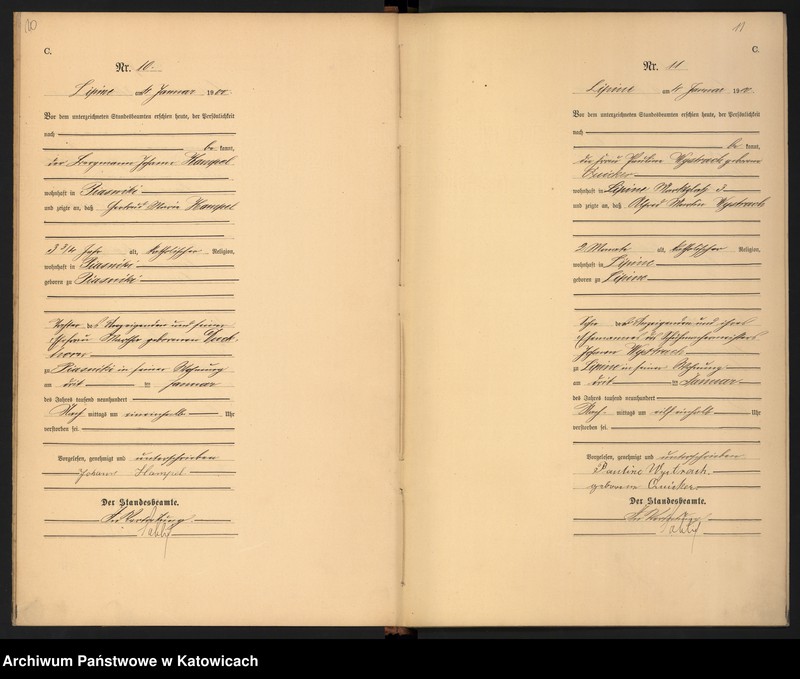 10
C.
Nr. 10.
Lipine am 4. Januar 1900.
Vor dem unterzeichneten Standesbeamten erschien heute, der Persönlichkeit
nach
be kannt,
der Bergmann Johann Hampel
wohnhaft in Piasniki
und zeigte an, daß Gertrud Maria Hampel
3 3/4 Jahr alt, katholischer Religion,
wohnhaft in Piasniki
geboren zu Piasniki
Tochter des Anzeigenden und seiner
Ehefrau Martha geborenen
zu Piasniki in seiner Wohnung
am drit ten Januar
des Jahres tausend neunhundert
Nach mittags um eineinhalb Uhr
verstorben sei.
Vorgelesen, genehmigt und unterschrieben
Johann Hampel
Der Standesbeamte.
In Vertretung
11
C.
Nr. 11
Lipine am 4. Januar 1900.
Vor dem unterzeichneten Standesbeamten erschien heute, der Persönlichkeit
nach
be kannt,
die Frau Pauline Wystrach geborene
Cuicker
wohnhaft in Lipine Marktplatz 3
und zeigte an, daß Alfred Martin Wystrach
2 Monate alt, katholischer Religion,
wohnhaft in Lipine
geboren zu Lipine
Sohn der Anzeigenden und ihres
Ehemannes des Schuhmachermeisters
Johann Wystrach
zu Lipine in seiner Wohnung
am drit ten Januar
des Jahres tausend neunhundert
Nach mittags um elfeinhalb Uhr
verstorben sei.
Vorgelesen, genehmigt und unterschrieben
Pauline Wystrach
geborene Cuicker
Der Standesbeamte.
In Vertretung
Archiwum Państwowe w Katowicach